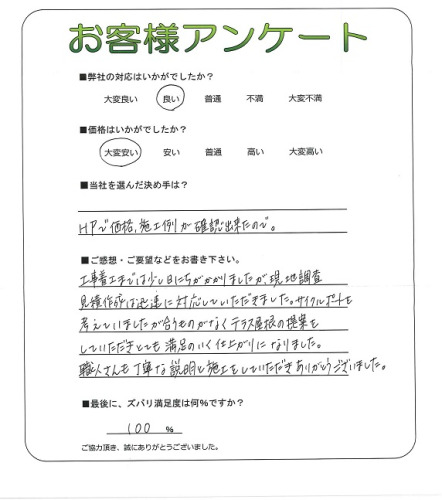 お客様アンケート
■弊社の対応はいかがでしたか？
大変良い 良い 普通 不満 大変不満
■価格はいかがでしたか？
大変安い 安い 普通 高い 大変高い
■当社を選んだ決め手は？
HPで価格,施工例が確認出来たので。
■ご感想・ご要望などをお書き下さい。
工事着工までは少し日にちがかかりましたが、現地調査
見積作成は迅速に対応していただきました。サイクルポートを
考えていましたが合うものがなくテラス屋根の提案を
していただきとても満足のいく仕上がりになりました。
職人さんも丁寧な説明と施工をしていただきありがとうございました。
■最後に、ズバリ満足度は何％ですか？
100 ％
ご協力頂き、誠にありがとうございました。